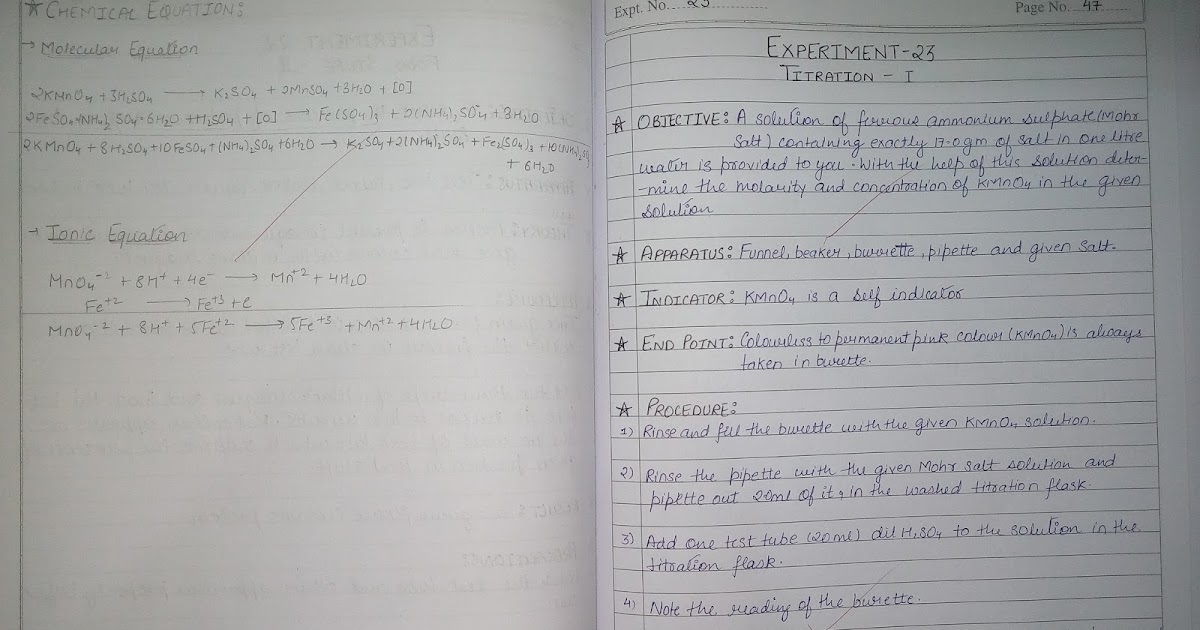 ☆ CHEMICAL EQUATIONS
→ Molecular Equation
2KMnO4 + 3H2SO4 → K2SO4 + 2MnSO4 + 3H2O + [O]
2FeSO4+(NH4)2 SO4·6H2O + H2SO4 + [O] → Fe(SO4)3 + 2(NH4)2SO4 + 3H2O
2KMnO4 + 8H2SO4 + 10FeSO4 + (NH4)2SO4 + 6H2O → K2SO4 + 2(NH4)2SO4 + Fe2(SO4)3 + 10(NH4)2SO4
+ 6H2O
→ Ionic Equation
MnO4⁻² + 8H⁺ + 4e⁻ → Mn⁺² + 4H2O
Fe⁺² → Fe⁺³ + e
MnO4⁻² + 8H⁺ + 5Fe⁺² → 5Fe⁺³ + Mn⁺² + 4H2O
Expt. No. 23 Page No. 47
EXPERIMENT-23
TITRATION - I
☆ OBJECTIVE: A solution of ferrous ammonium sulphate (Mohr
Salt) containing exactly 17.0gm of salt in one litre
water is provided to you. With the help of this solution deter-
-mine the molarity and concentration of KMnO4 in the given
solution
☆ APPARATUS: Funnel, beaker, burette, pipette and given salt.
☆ INDICATOR: KMnO4 is a self indicator
☆ END POINT: Colourless to permanent pink colour (KMnO4) is always
taken in burette.
☆ PROCEDURE:
1) Rinse and fill the burette with the given KMnO4 solution.
2) Rinse the pipette with the given Mohr salt solution and
pipette out 20ml of it, in the washed titration flask.
3) Add one test tube (20ml) dil H2SO4 to the solution in the
titration flask.
4) Note the reading of the burette.